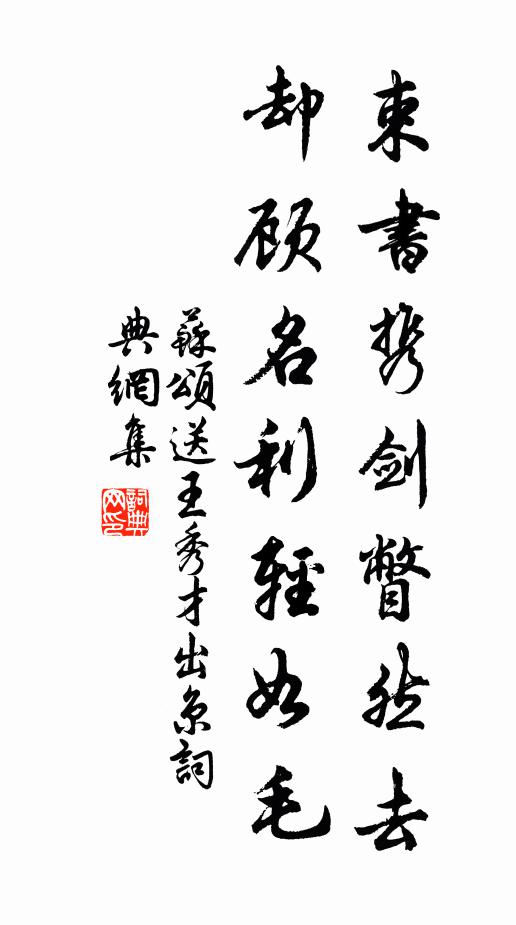 束書携剑瞥然去
却顾名利輕如毛
蘇頌送王秀才出京詞
典網集
詞典网印